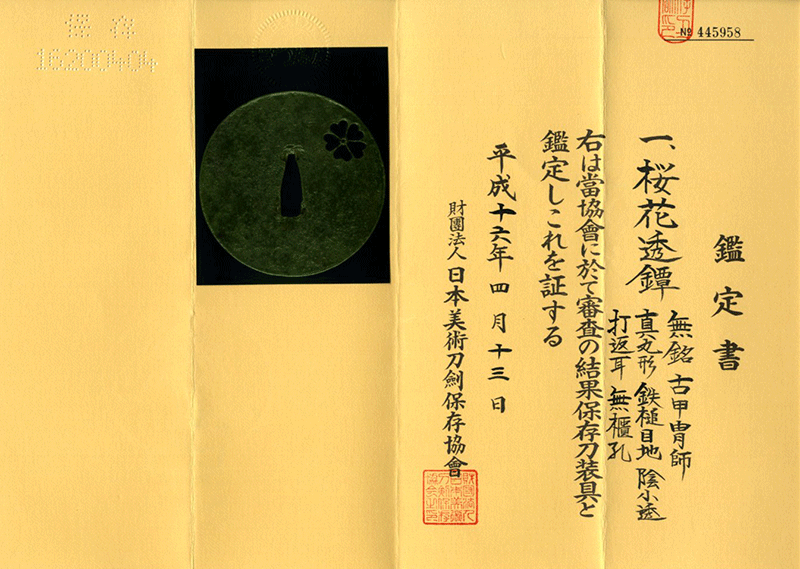 № 445958
鑑定書
一、桜花透鐔
無銘 古甲冑師
真丸形 鉄槌目地 陰小透
打返耳 無櫃孔
右は當協會に於て審査の結果保存刀装具と
鑑定しこれを証する
平成十六年四月十三日
財團法人 日本美術刀劍保存協會
保存
16200404